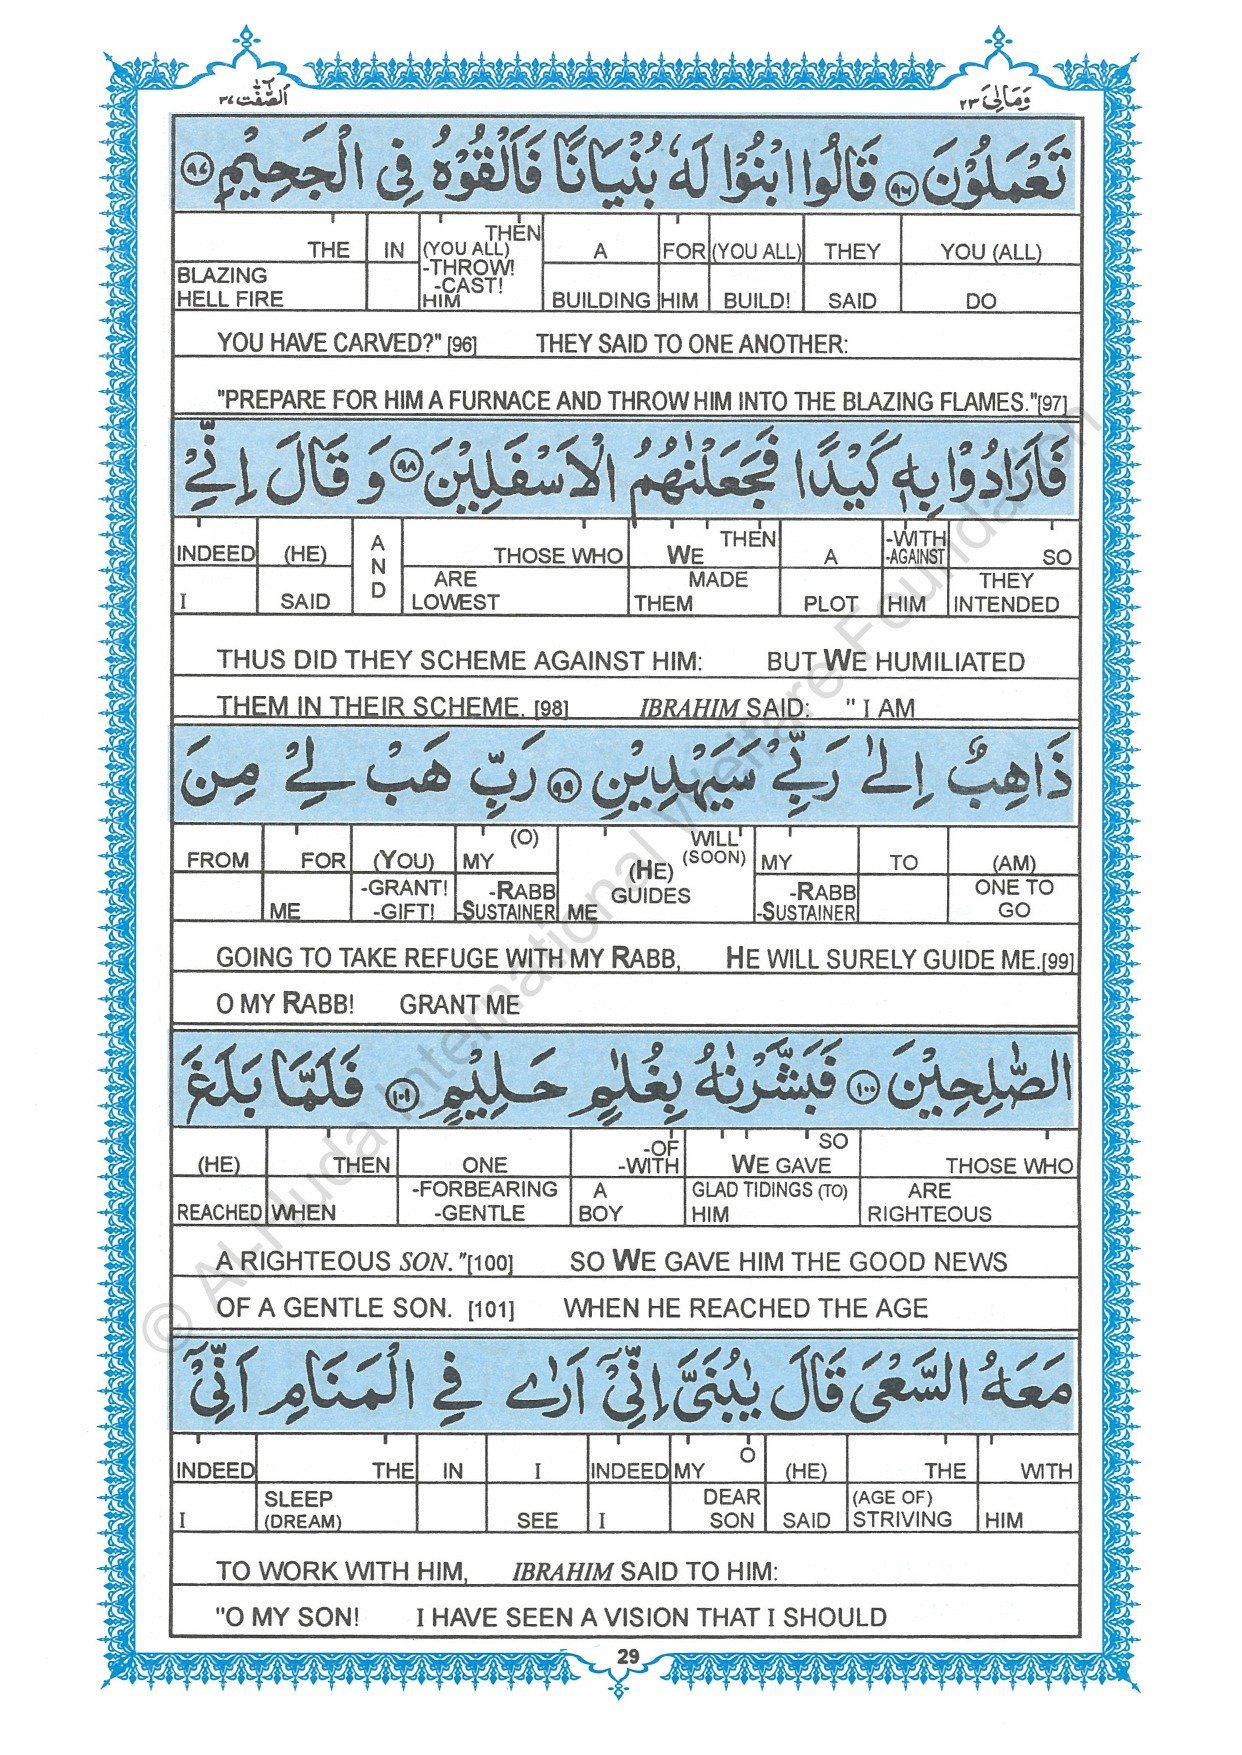 وَمَالِیَ ٢٣
اَلصّٰٓفّٰت ٣٧
تَعْمَلُوْنَ ٩٦ قَالُوا ابْنُوْا لَهٗ بُنْيَانًا فَاَلْقُوْهُ فِى الْجَحِيْمِ ٩٧
THE IN (YOU ALL) THEN A FOR (YOU ALL) THEY YOU (ALL)
-THROW!
-CAST!
BLAZING
HELL FIRE HIM BUILDING HIM BUILD! SAID DO
YOU HAVE CARVED?" [96] THEY SAID TO ONE ANOTHER:
"PREPARE FOR HIM A FURNACE AND THROW HIM INTO THE BLAZING FLAMES."[97]
فَاَرَادُوْا بِهٖ كَيْدًا فَجَعَلْنٰهُمُ الْاَسْفَلِيْنَ ٩٨ وَ قَالَ اِنِّىْ
INDEED (HE) AND THOSE WHO WE THEN A -WITH -AGAINST SO
ARE MADE THEY
I SAID LOWEST THEM PLOT HIM INTENDED
THUS DID THEY SCHEME AGAINST HIM: BUT WE HUMILIATED
THEM IN THEIR SCHEME. [98] IBRAHIM SAID: " I AM
ذَاهِبٌ اِلٰى رَبِّىْ سَيَهْدِيْنِ ٩٩ رَبِّ هَبْ لِىْ مِنَ
FROM FOR (YOU) MY (O) (HE) WILL (SOON) MY TO (AM)
-GRANT! -RABB GUIDES -RABB ONE TO
ME -GIFT! -SUSTAINER ME -SUSTAINER GO
GOING TO TAKE REFUGE WITH MY RABB, HE WILL SURELY GUIDE ME.[99]
O MY RABB! GRANT ME
الصّٰلِحِيْنَ ١٠٠ فَبَشَّرْنٰهُ بِغُلٰمٍ حَلِيْمٍ ١٠١ فَلَمَّا بَلَغَ
(HE) THEN ONE -OF -WITH WE GAVE SO THOSE WHO
-FORBEARING A GLAD TIDINGS (TO) ARE
REACHED WHEN -GENTLE BOY HIM RIGHTEOUS
A RIGHTEOUS SON. "[100] SO WE GAVE HIM THE GOOD NEWS
OF A GENTLE SON. [101] WHEN HE REACHED THE AGE
مَعَهُ السَّعْىَ قَالَ يٰبُنَىَّ اِنِّىْٓ اَرٰى فِى الْمَنَامِ اَنِّىْٓ
INDEED THE IN I INDEED MY O (HE) THE WITH
SLEEP DEAR (AGE OF)
I (DREAM) SEE I SON SAID STRIVING HIM
TO WORK WITH HIM, IBRAHIM SAID TO HIM:
"O MY SON! I HAVE SEEN A VISION THAT I SHOULD
29
© Al-Huda International Welfare Foundation